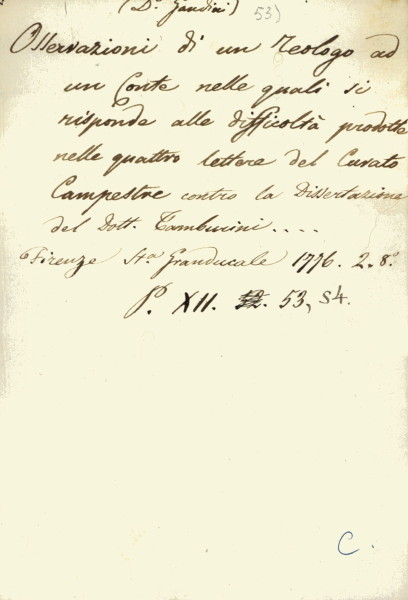 (Dr. Gaudini) 53)
Osservazioni di un Teologo ad
un Conte nelle quali si
risponde alle difficoltà prodotte
nelle quattro lettere del Curato
Campestre contro la Dissertazione
del Dott. Tamburini ....
Firenze Sta Granducale 1776. 2. 8.o
P. XII. 52. 53, 54.
C.